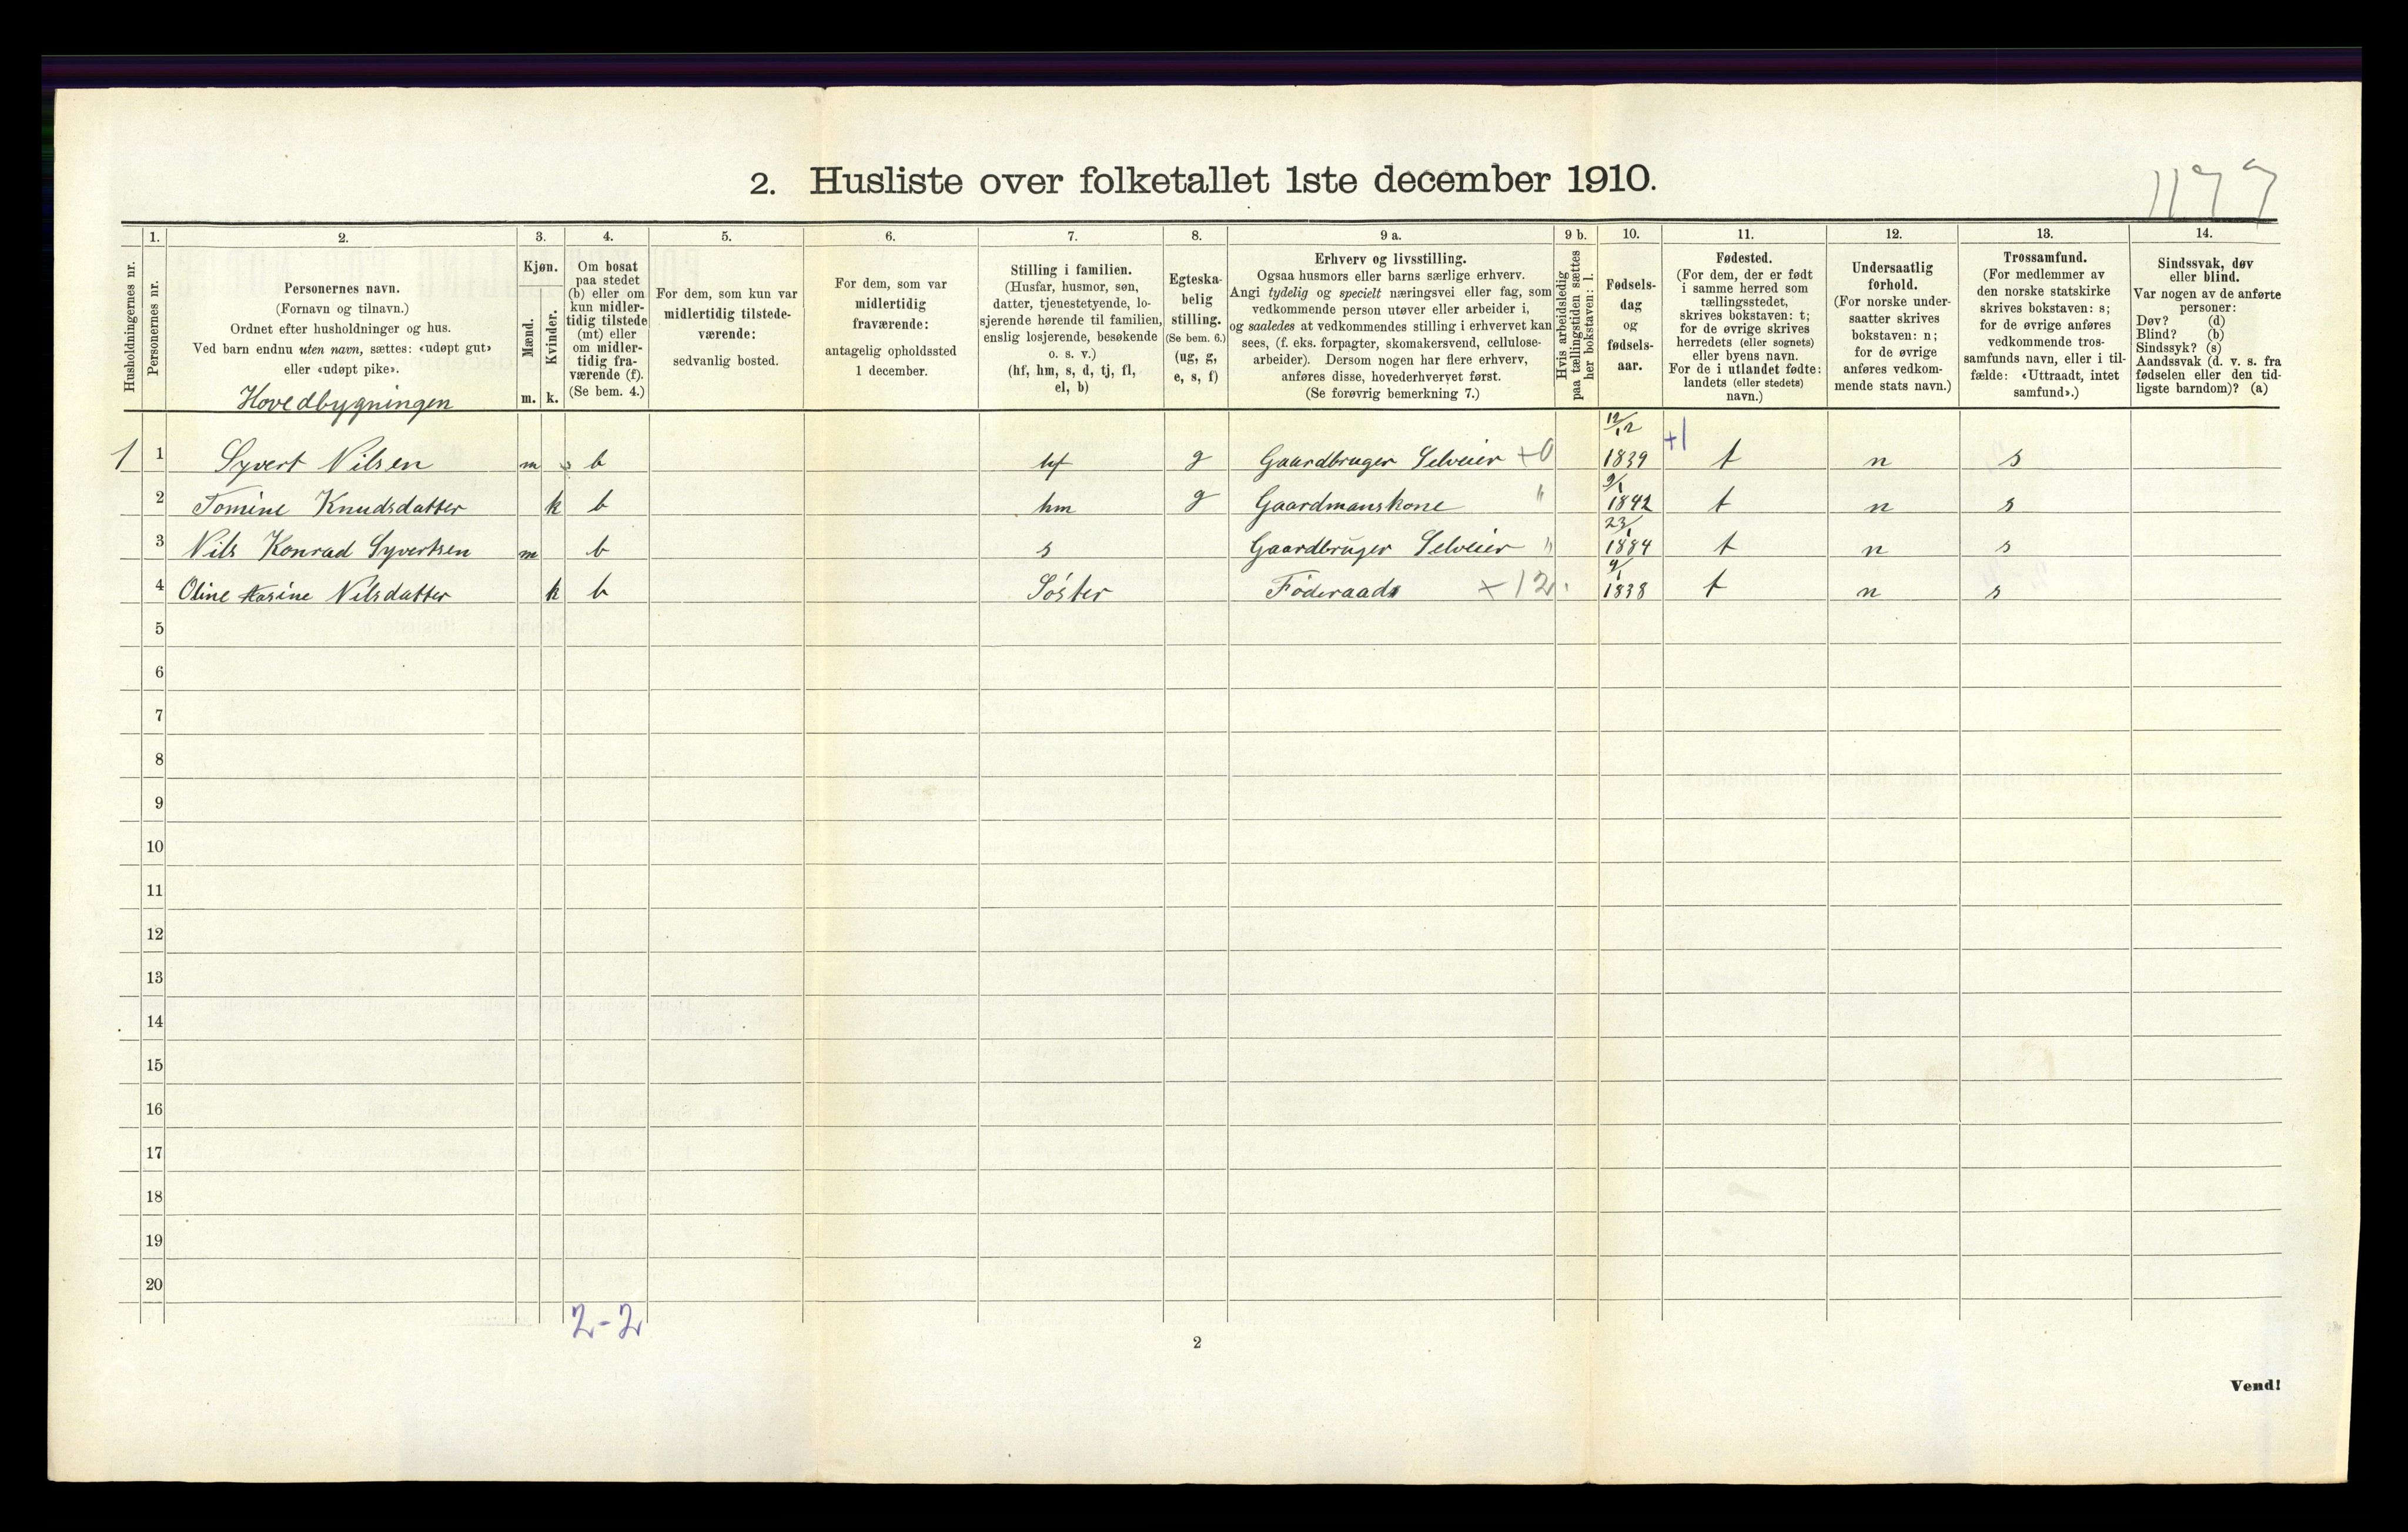 2. Husliste over folketallet 1ste december 1910.
1177
Husholdningernes nr.
1.
Personernes nr.
2.
Personernes navn.
(Fornavn og tilnavn.)
Ordnet efter husholdninger og hus.
Ved barn endnu uten navn, sættes: «udøpt gut»
eller «udøpt pike».
Hovedbygningen
3.
Kjøn.
Mænd.
Kvinder.
m. k.
4.
Om bosat
paa stedet
(b) eller om
kun midler-
tidig tilstede
(mt) eller
om midler-
tidig fra-
værende (f).
(Se bem. 4.)
5.
For dem, som kun var
midlertidig tilstede-
værende:
sedvanlig bosted.
6.
For dem, som var
midlertidig
fraværende:
antagelig opholdssted
1 december.
7.
Stilling i familien.
(Husfar, husmor, søn,
datter, tjenestetyende, lo-
sjerende hørende til familien,
enslig losjerende, besøkende
o. s. v.)
(hf, hm, s, d, tj, fl,
el, b)
8.
Egteska-
belig
stilling.
(Se bem. 6.)
(ug, g,
e, s, f)
9 a.
Erhverv og livsstilling.
Ogsaa husmors eller barns særlige erhverv.
Angi tydelig og specielt næringsvei eller fag, som
vedkommende person utøver eller arbeider i,
og saaledes at vedkommendes stilling i erhvervet kan
sees, (f. eks. forpagter, skomakersvend, cellulose-
arbeider). Dersom nogen har flere erhverv,
anføres disse, hovederhvervet først.
(Se forøvrig bemerkning 7.)
9 b.
Hvis arbeidsledig
paa tællingstiden sættes
her bokstaven: l.
10.
Fødsels-
dag
og
fødsels-
aar.
11.
Fødested.
(For dem, der er født
i samme herred som
tællingsstedet,
skrives bokstaven: t;
for de øvrige skrives
herredets (eller sognets)
eller byens navn.
For de i utlandet fødte:
landets (eller stedets)
navn.)
12.
Undersaatlig
forhold.
(For norske under-
saatter skrives
bokstaven: n;
for de øvrige
anføres vedkom-
mende stats navn.)
13.
Trossamfund.
(For medlemmer av
den norske statskirke
skrives bokstaven: s;
for de øvrige anføres
vedkommende tros-
samfunds navn, eller i til-
fælde: «Uttraadt, intet
samfund».)
14.
Sindssvak, døv
eller blind.
Var nogen av de anførte
personer:
Døv? (d)
Blind? (b)
Sindssyk? (s)
Aandssvak (d. v. s. fra
fødselen eller den tid-
ligste barndom)? (a)
1 1 Syvert Nilsen m b hf g Gaardbruger Selveier +0 12/12 1839 +1 t n s
2 Tomine Knudsdatter k b hm g Gaardmanskone " 9/1 1842 t n s
3 Nils Konrad Syvertsen m b s Gaardbruger Selveier " 23/1 1884 t n s
4 Oline Nilsdatter k b Söster Föderaads +12. 9/1 1838 t n s
5
6
7
8
9
10
11
12
13
14
15
16
17
18
19
20
2-2
2
Vend!